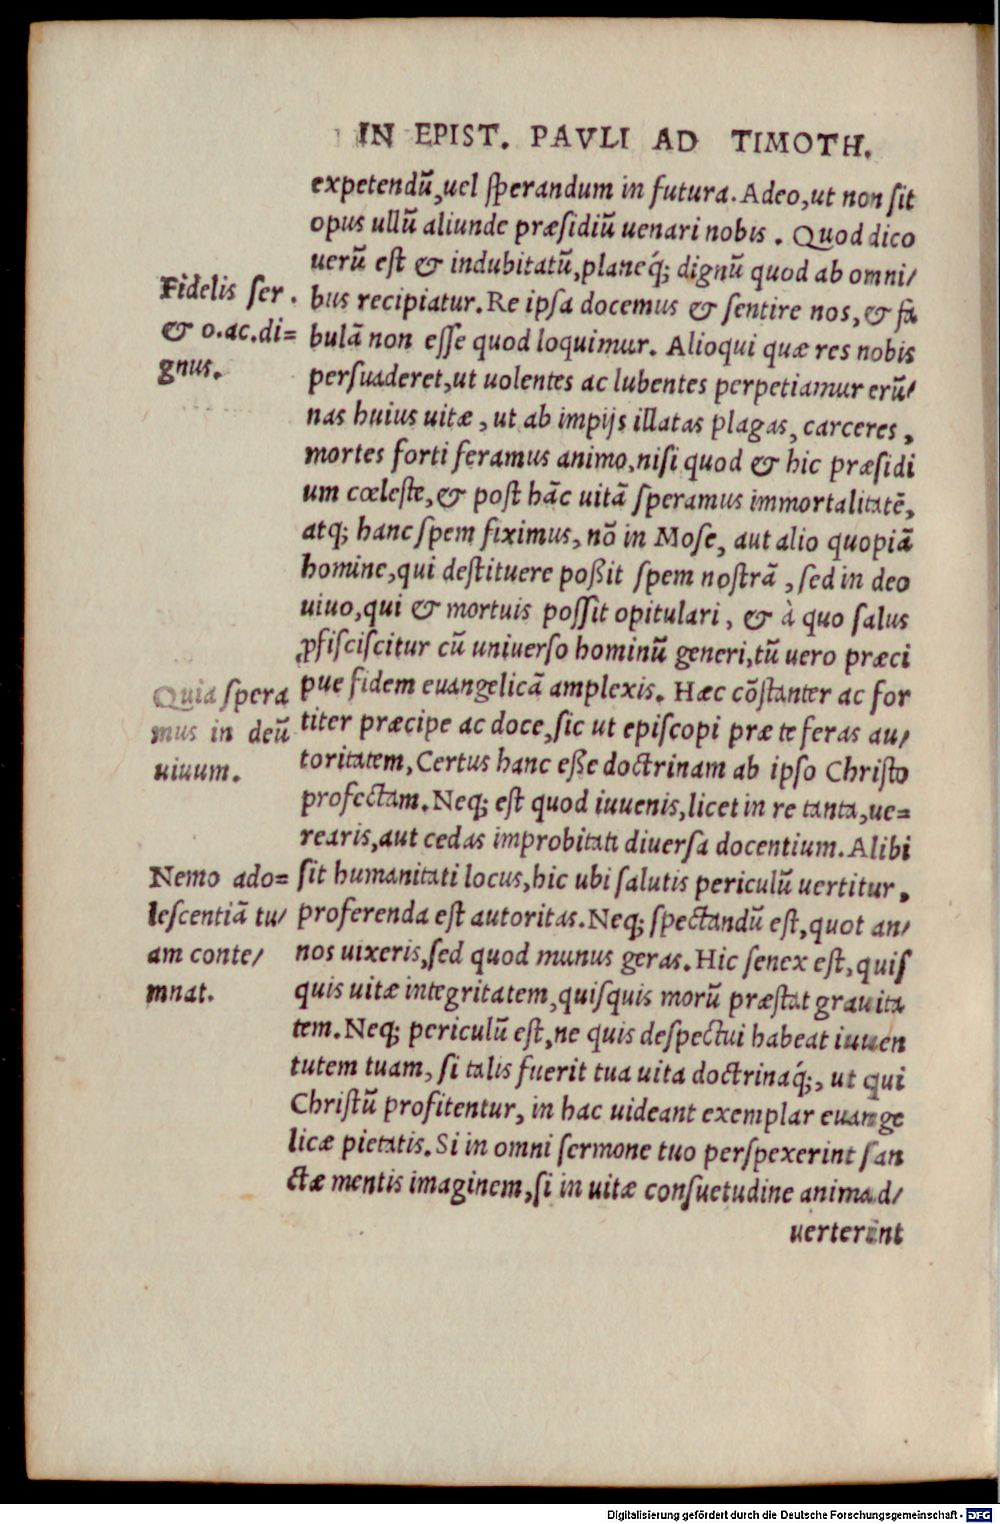 IN EPIST. PAVLI AD TIMOTH.
expetendū, uel sperandum in futura. Adeo, ut non sit
opus ullū aliunde præsidiū uenari nobis. Quod dico
uerū est & indubitatū, planeq́; dignū quod ab omni/
Fidelis ser.
bus recipiatur. Re ipsa docemus & sentire nos, & fa
& o. ac. di=
bulā non esse quod loquimur. Alioqui quæ res nobis
gnus.
persuaderet, ut uolentes ac lubentes perpetiamur erū/
nas huius uitæ, ut ab impijs illatas plagas, carceres,
mortes forti feramus animo, nisi quod & hic præsidi
um cœleste, & post hāc uitā speramus immortalitatē,
atq; hanc spem fiximus, nō in Mose, aut alio quopiā
homine, qui destituere poßit spem nostrā, sed in deo
uiuo, qui & mortuis possit opitulari, & à quo salus
ꝓfisciscitur cū uniuerso hominū generi, tū uero præci
Quia spera
pue fidem euangelicā amplexis. Hæc cōstanter ac for
mus in deū
titer præcipe ac doce, sic ut episcopi præ te feras au/
uiuum.
toritatem, Certus hanc eße doctrinam ab ipso Christo
profectam. Neq; est quod iuuenis, licet in re tanta, ue=
rearis, aut cedas improbitati diuersa docentium. Alibi
Nemo ado=
sit humanitati locus, hic ubi salutis periculū uertitur,
lescentiā tu/
proferenda est autoritas. Neq; spectandū est, quot an/
am conte/
nos uixeris, sed quod munus geras. Hic senex est, quis
mnat.
quis uitæ integritatem, quisquis morū præstat grauita
tem. Neq; periculū est, ne quis despectui habeat iuuen
tutem tuam, si talis fuerit tua uita doctrinaq́;, ut qui
Christū profitentur, in hac uideant exemplar euange
licæ pietatis. Si in omni sermone tuo perspexerint san
ctæ mentis imaginem, si in uitæ consuetudine animad/
uerterint
Digitalisierung gefördert durch die Deutsche Forschungsgemeinschaft - DFG